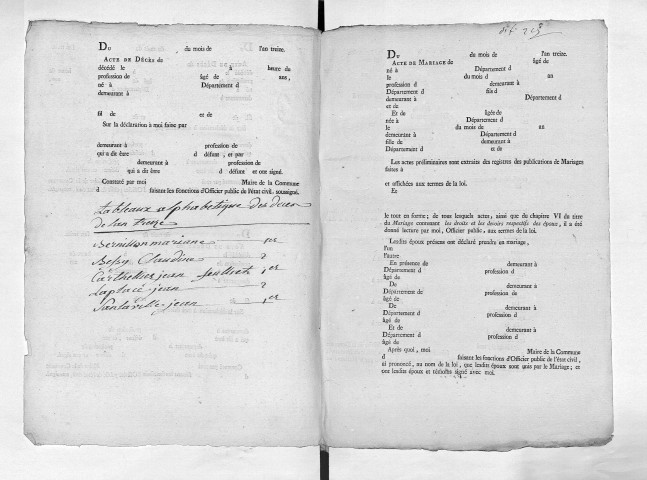 Du du mois de l'an treize.
Acte de Décès de
décédé le à heure du
profession de âgé de ans,
né à Département d
demeurant à
fil de et de
Sur la déclaration à moi faite par
demeurant à profession de
qui a dit être d défunt, et par
demeurant à profession de
qui a dit être d défunt et ont signé.
Constaté par moi Maire de la Commune
d faisant les fonctions d'Officier public de l'état civil, soussigné.
Tableaux alphabetique des deces
de lan treize
Bernisson mariane
Bessy Claudine
Carthelier jean
Laplace jean
Santaville jean 1er
Du du mois de l'an treize.
Acte de Mariage de âgé de
né à Département d
le du mois d an
profession d demeurant à
Département d fils d
demeurant à Département d
et de
Et de âgée de
née à Département d
le du mois de an
demeurant à Département d
fille de demeurant à
Département d et de
Les actes préliminaires sont extraits des registres des publications de Mariages
faites à
et affichées aux termes de la loi.
Et
le tout en forme; de tous lesquels actes, ainsi que du chapitre VI du titre
du Mariage contenant les droits et les devoirs respectifs des époux, il a été
donné lecture par moi, Officier public, aux termes de la loi.
Lesdits époux présens ont déclaré prendre en mariage,
l'un
l'autre
En présence de demeurant à
Département d profession d
âgé de
De demeurant à
Département de profession d
âgé de
De demeurant à
Département d profession d
âgé de
Et de demeurant à
Département d profession d
âgé de
Après quoi, moi Maire de la Commune
d faisant les fonctions d'Officier public de l'état civil,
ai prononcé, au nom de la loi, que lesdits époux sont unis par le Mariage; et
ont lesdits époux et témoins signé avec moi.